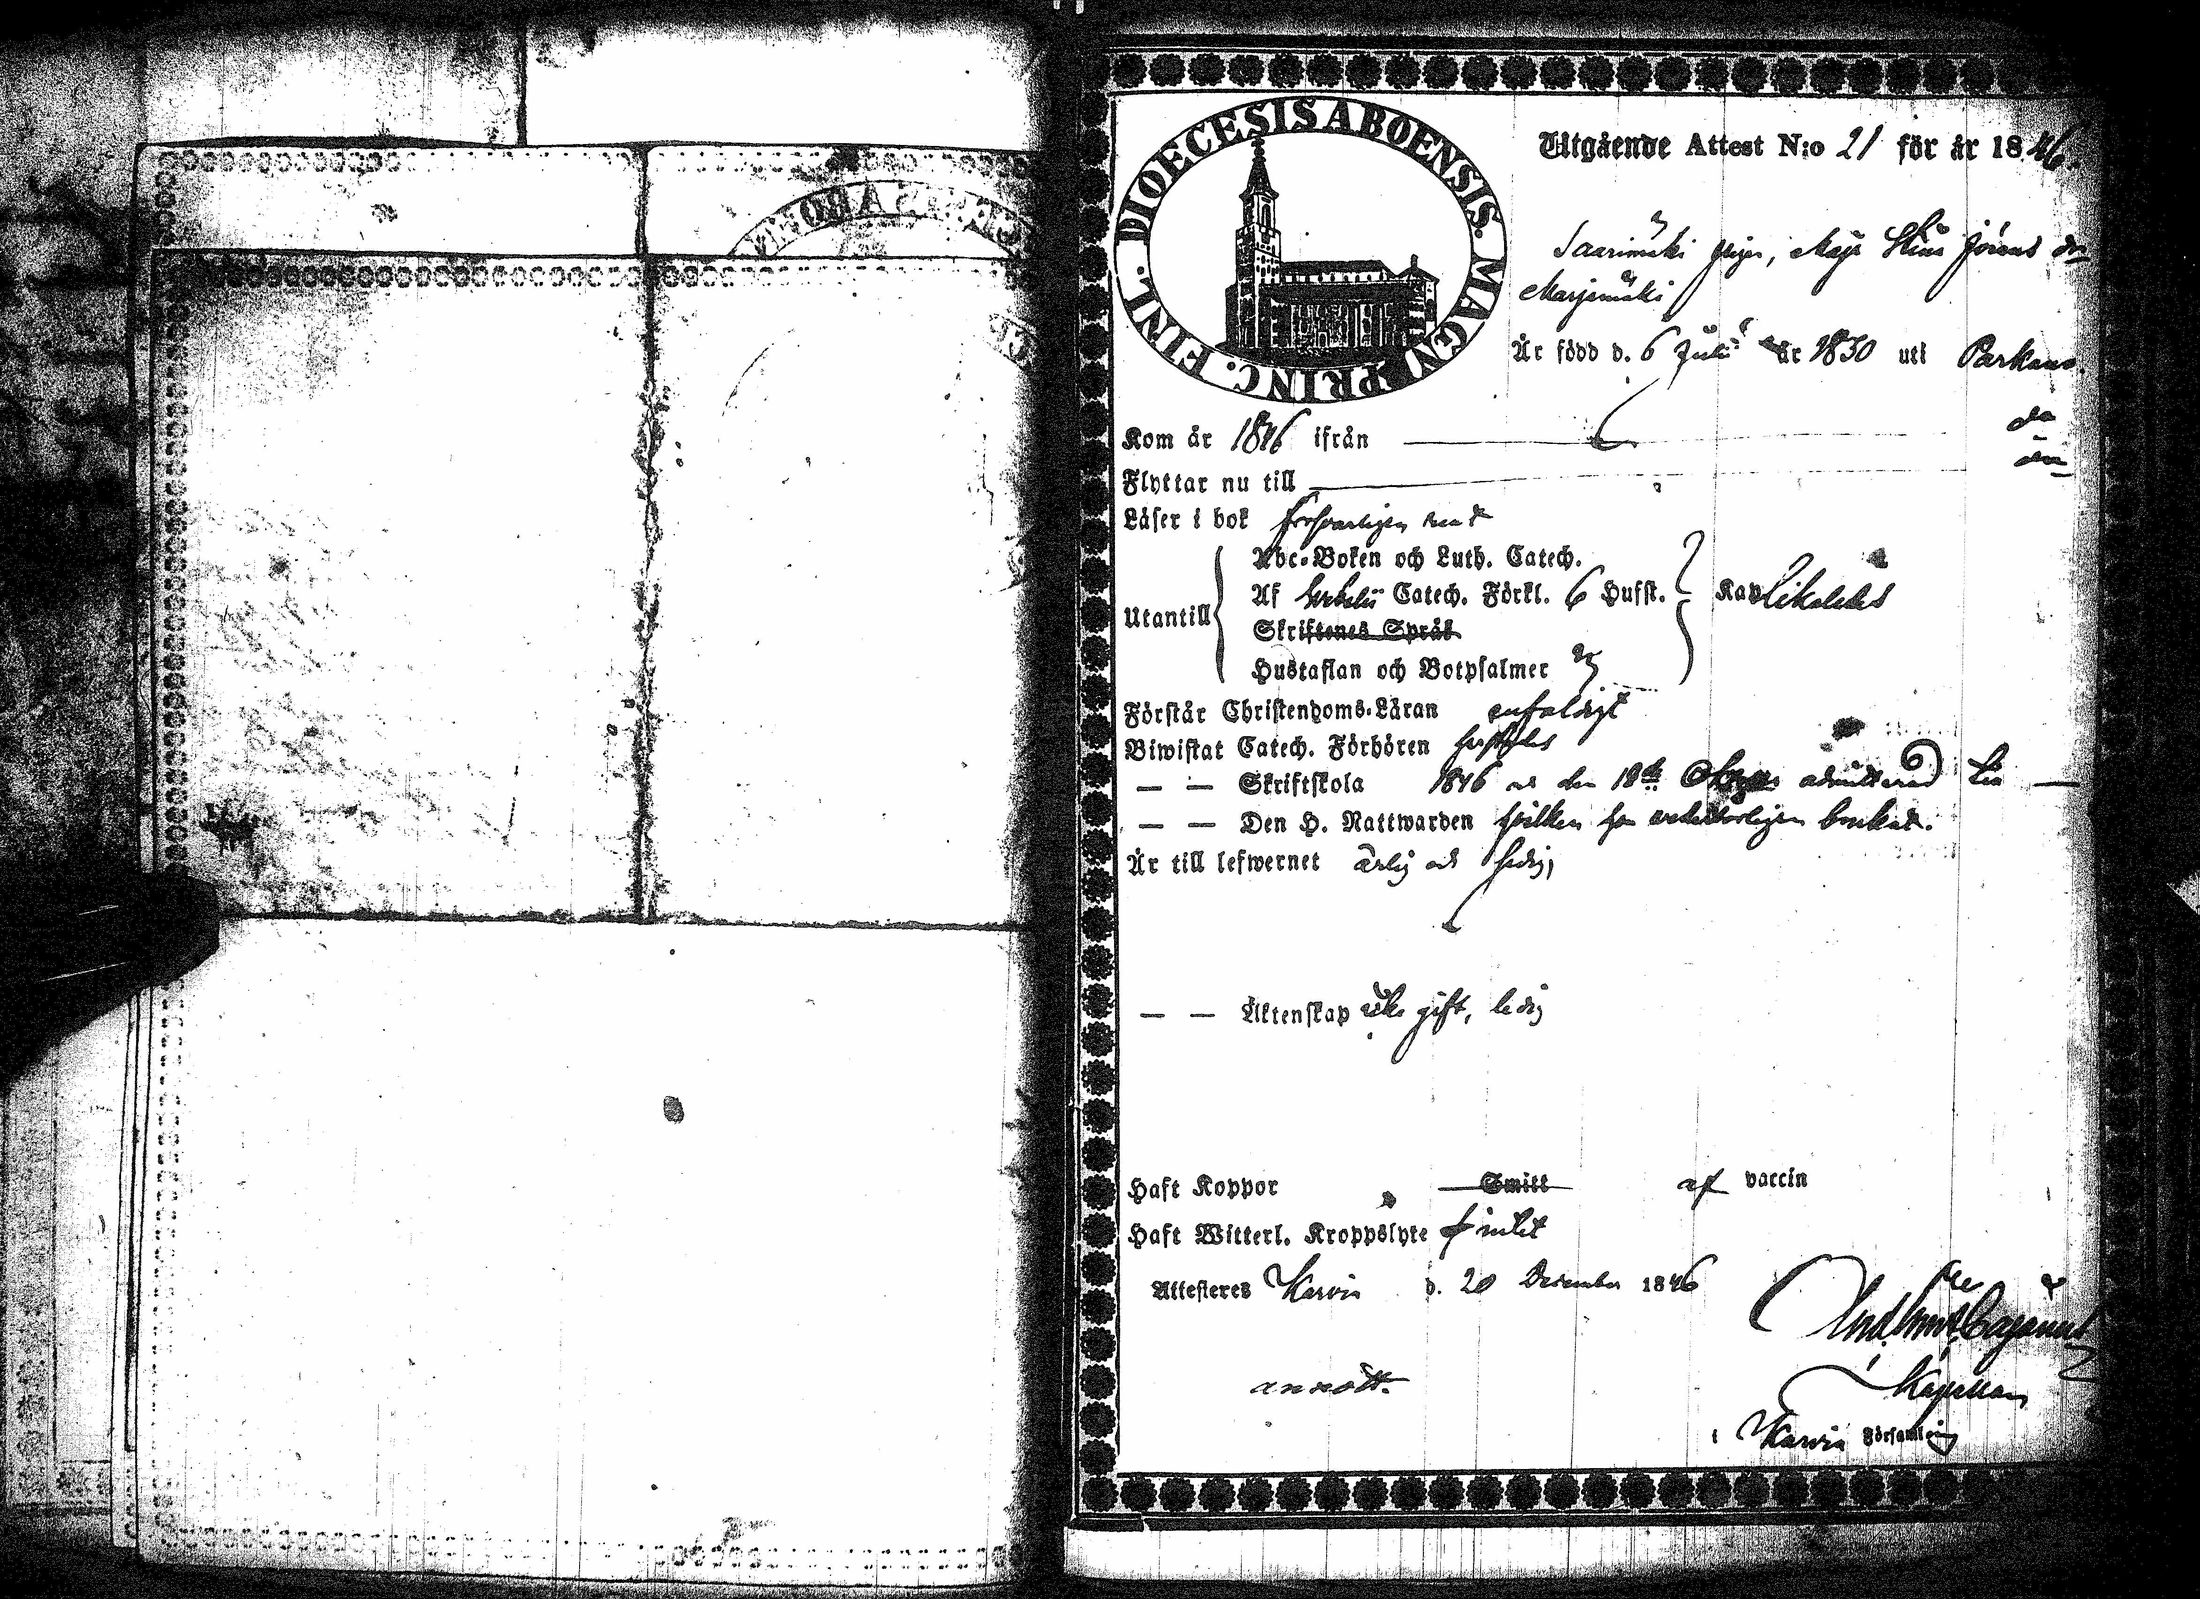 DIOECESIS ABOENSIS. MAGNI PRINC. FINL.
Utgående Attest N:o 21 för år 1846.
Saarimäki pigan, Maja Stina Jörans dr
Marjamäki
Är född d. 6 Julii år 1830 uti Parkano.
Kom år 1846 ifrån
Flyttar nu till
Läser i bok försvarligen rent
Abc-Boken och Luth. Catech.
Af Catech. Förkl. 6 Hufst.
Utantill Kan likaledes
Skriftenes Språk
Hustaflan och Botpsalmer
Förstår Christendoms-Läran enfaldigt
Biwistat Catech. Förhören
— — Skriftskola 1846 och den 18de admitterad till —
— — Den H. Nattwarden hvilken hon vederbörligen
Är till lefwernet ärlig och
— — Äktenskap icke gift, ledig
Haft Koppor Smitt af vaccin
Haft Witterl. Kroppslyte intet
Attesteres Karvia d. 20 December 1846
Cajanus
annott. Kapellan
i Karvia Församling